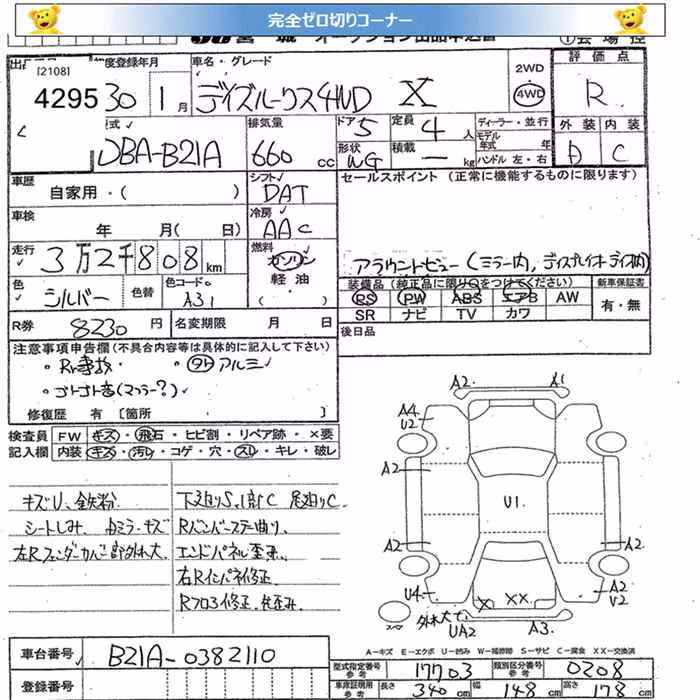 完全ゼロ切りコーナー
[2108]
4295
度登録年月
30 1月
車名・グレード
デイズルークス4WD X
2WD
4WD
評価点
R
型式
DBA-B21A
排気量
660 cc
ドア 5
定員 4 人
形状 WG
積載 ー kg
ディーラー・並行
モデル年式 年
ハンドル 左・右
外装 内装
D C
車歴
自家用・( )
シフト
DAT
セールスポイント (正常に機能するものに限ります)
車検
年 月( 日)
冷房
AAC
走行
3万2千808km
燃料
ガソリン
軽油
( )
アラウンドビュー(ミラー内, ディスプレイオーディオ内)
色
シルバー
色替
色コードNo
A31
装備品(純正品に限り○をつけてください)
PS PW ABS エアB AW
SR ナビ TV カワ
新車保証書
有・無
R券 8230円
名変期限 月 日
後日品
注意事項申告欄(不具合内容等は具体的に記入して下さい)
・Rr事故 ・タト アルミ
・ゴトゴト音(マフラー?)
修復歴 有 〔箇所 〕
検査員
記入欄
FW キズ・飛石・ヒビ割・リペア跡・×要
内装 キズ・汚レ・コゲ・穴・スレ・キレ・破レ
キズU、鉄粉
シートしみ、内ミラーキズ
左Rフェンダーカバー部外れ大
下廻りS、1部C 足廻りC
Rバンパーステー曲り、
エンドパネル歪み
右Rインパネ修正
Rフロア修正
A2 A1
A4
U2
A2
U1
A2 A2
U4 A2
U2
X XX
外れ大
UA2 A3
A-キズ E-エクボ U-凹み W-補修跡 S-サビ C-腐食 XX-交換済
車台番号 B21A-0382110
登録番号
型式指定番号 参考 17703
類別区分番号 参考 0208
車庫証明用 参考 長さ 340cm 幅 148cm 高さ 178cm